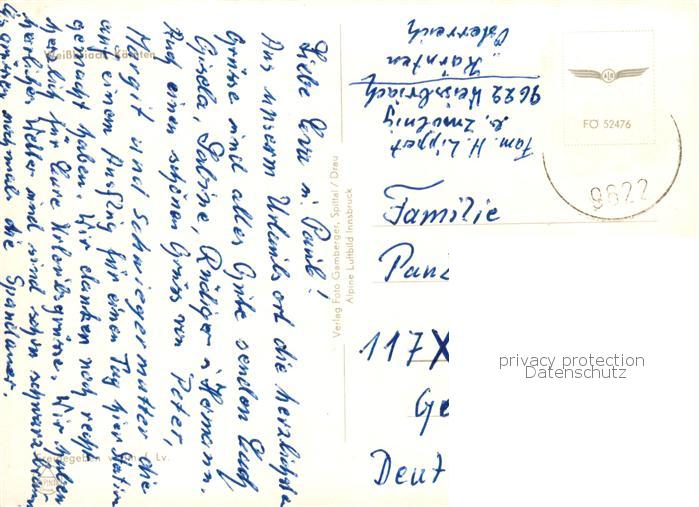 Weißbriach, Kärnten
Liebe Erni u. Paul!
Aus unserm Urlaubsort die herzlichsten
Grüsse und alles Gute senden Euch
Gisela, Sabine, Rüdiger u. Hermann.
Auch einen schönen Gruss von Peter,
Margit und Schwiegermutter die
auf einem Ausflug für einen Tag hier Station
gemacht haben. Wir danken noch recht
herzlich für Eure Urlaubsgrüsse. Wir haben
herrliches Wetter und sind schon schwarzbraun
Es grüssen nochmals die Spandauer.
Freigegeben v. Lv.
Verlag Foto Gamberger, Spittal / Drau
Alpine Luftbild Innsbruck
Fam. H. Lippert
9622 Weissbriach
Kärnten
Österreich
FO 52476
9622
Familie
117X
Ge
Deut
privacy protection
Datenschutz